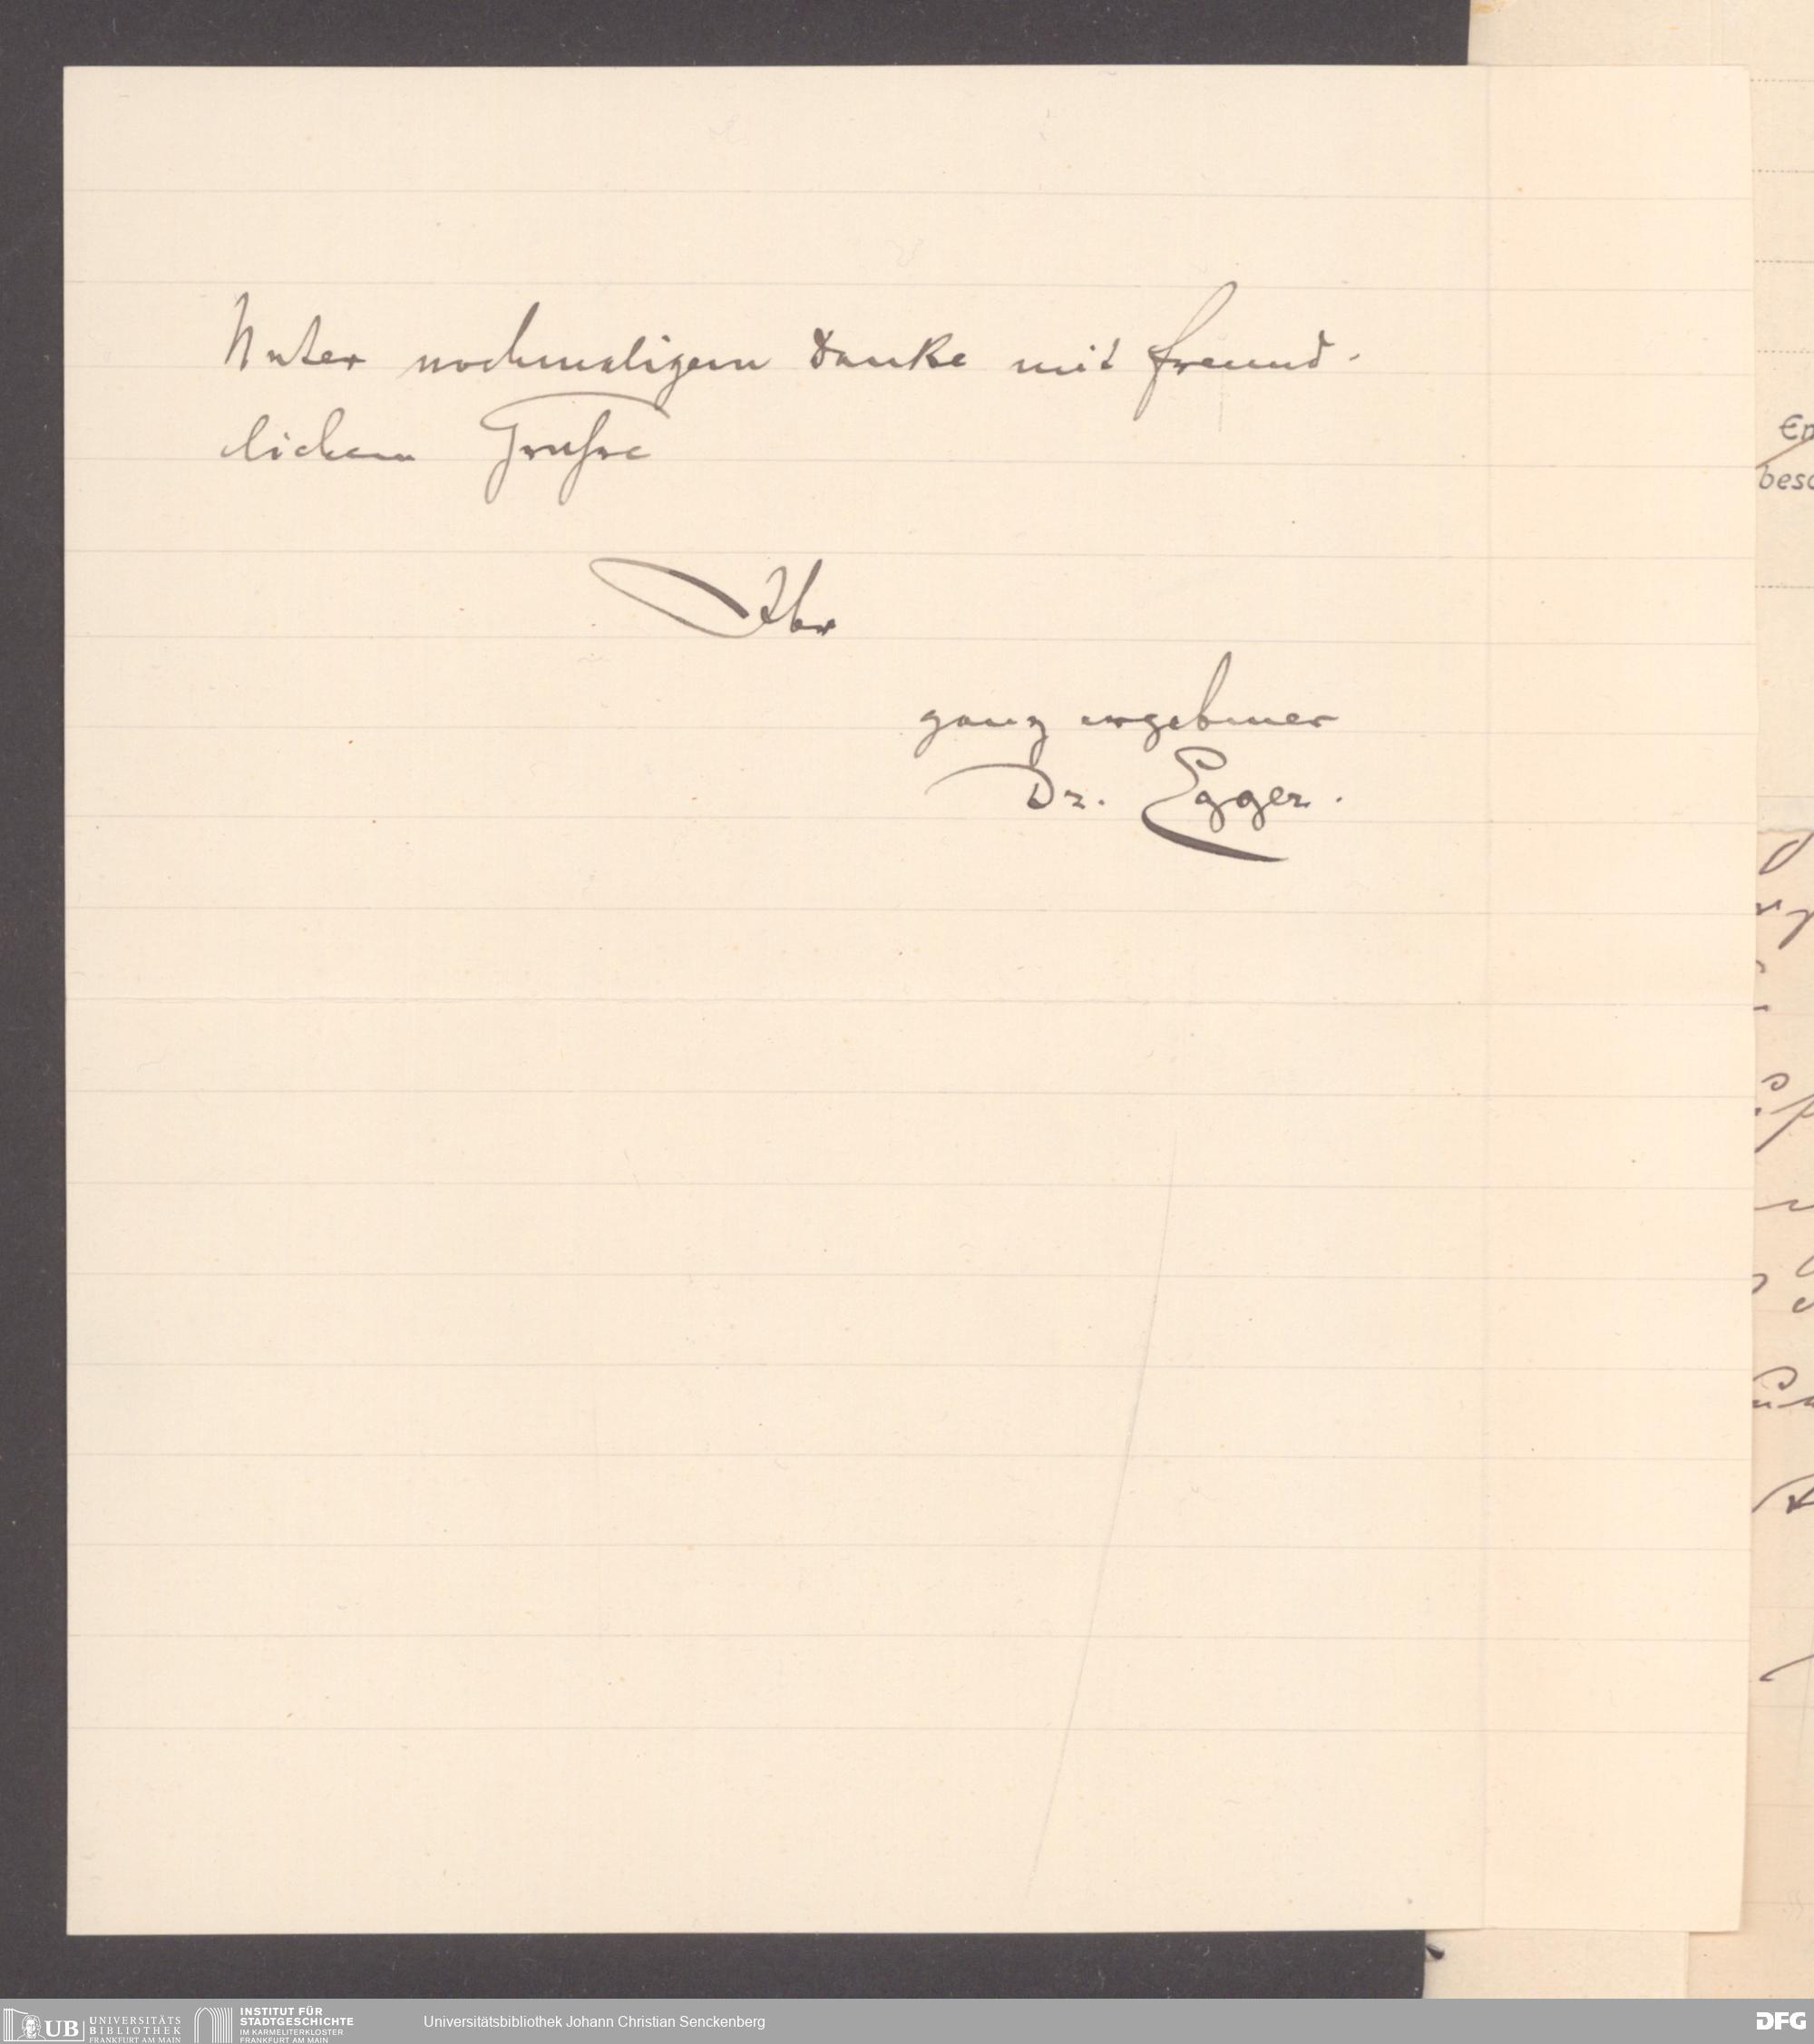 Unter nochmaligem Danke mit freund-
lichem Grusse
Ihr
ganz ergebener
Dr. Egger.
UB UNIVERSITÄTS
BIBLIOTHEK
FRANKFURT AM MAIN
INSTITUT FÜR
STADTGESCHICHTE
IM KARMELITERKLOSTER
FRANKFURT AM MAIN
Universitätsbibliothek Johann Christian Senckenberg
DFG